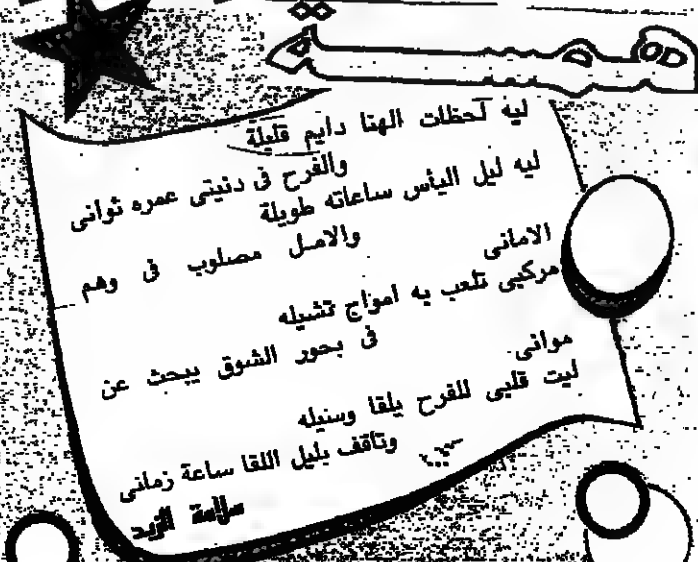 همسة
ليه لحظات الهنا دايم قليلة
والفرح فى دنيتى عمره ثوانى
ليه ليل اليأس ساعاته طويلة
والامل مصلوب فى وهم
الامانى
مركبى تلعب به امواج تشيله
فى بحور الشوق يبحث عن
موانى
ليت قلبى للفرح يلقا وسيله
وتاقف بليل اللقا ساعة زمانى
سلامة الزيد